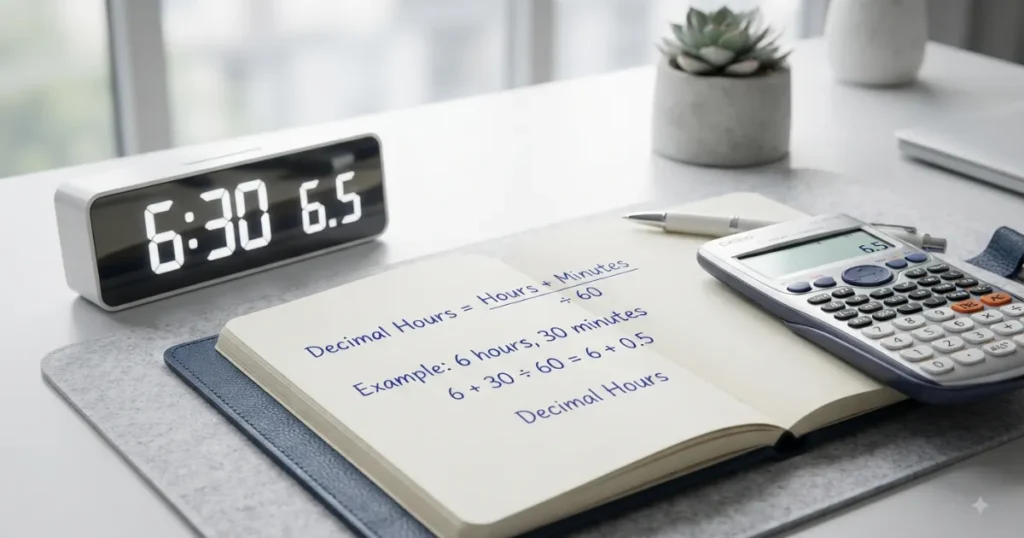 6:30 6.5
Decimal Hours = Hours + Minutes
÷ 60
Example: 6 hours, 30 minutes
6 + 30 ÷ 60 = 6 + 0.5
Decimal Hours
6.5